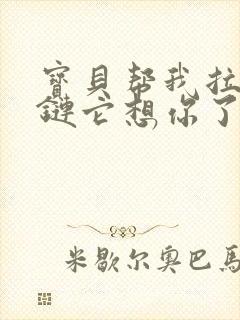 寶貝帮我拉
鏈它想你了
米歇尔奥巴馬